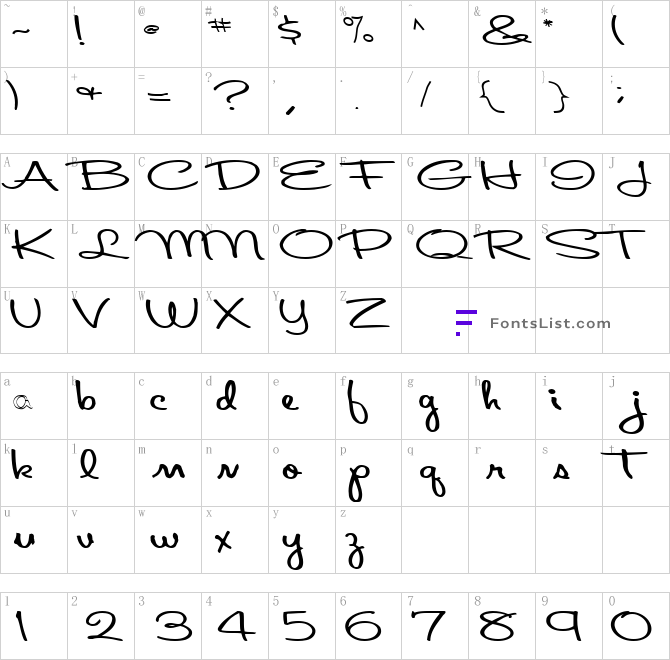 ~ ! @ # $ % ^ & * (
~ ! @ # $ % ^ & * (
) + = ? , . / { } ;
) + = ? , . / { } ;
A B C D E F G H I J
A B C D E F G H I J
K L M N O P Q R S T
K L M N O P Q R S T
U V W X Y Z
U V W X Y Z
FontsList.com
a b c d e f g h i j
a b c d e f g h i j
k l m n o p q r s t
k l m n o p q r s t
u v w x y z
u v w x y z
1 2 3 4 5 6 7 8 9 0
1 2 3 4 5 6 7 8 9 0